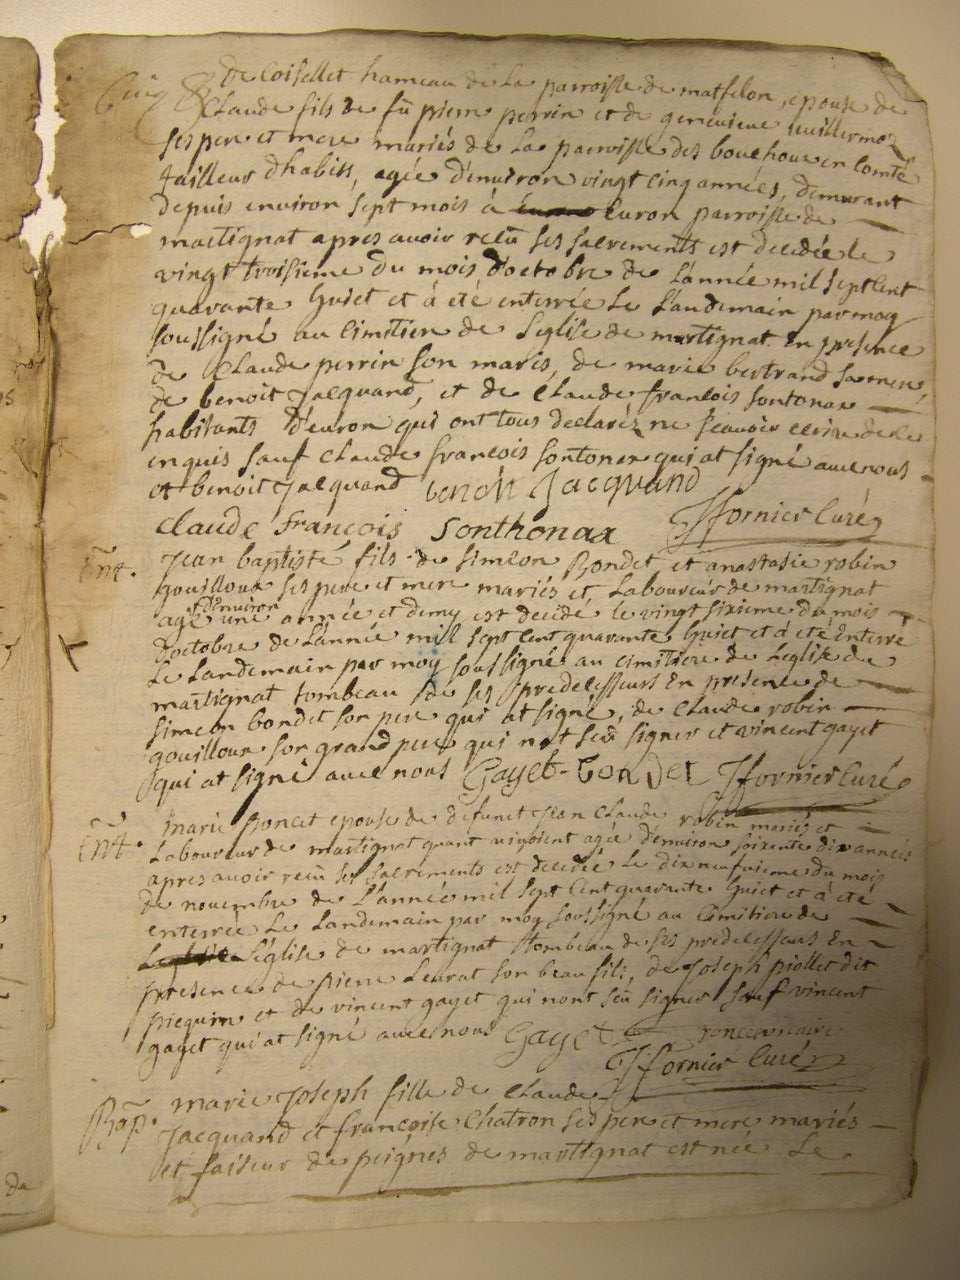 de Coisellet hameau de La parroisse de matfelon, epouse de
Claude fils de fû pierre perrin et de genevieve vuillermoz
ses pere et mere mariés de La parroisse des bouchoux en Comté
tailleur d'habits, agée d'environ vingt cinq années, demeurant
depuis environ sept mois á Euron parroisse de
martignat apres avoir recû ses sacrements est decedée le
vingt troisieme du mois d'octobre de L'année mil sept cent
quarante huict et á été enterrée Le Landemain par moy
soussigné au Cimitiere de L'eglise de martignat En presence
de Claude perrin son maris, de marie bertrand sa mere,
de benoit Jacquand, et de Claude françois sontonax
habitants d'euron qui ont tous declarez ne scavoir ecrire de ce
enquis sauf Claude françois sontonax qui at signé avec nous
et benoit Jacquand benoit Jacquand
Claude françois Sonthonax Jfornier Curé
Ent. Jean baptiste fils de simeon Bondet et anastasie robin
gouilloux ses pere et mere mariés et Laboureurs de martignat
d'environ
agé une année et demy est decidé le vingt sixieme du mois
d'octobre de L'année mill sept cent quarante huict et á été Enterré
Le Landemain par moy soussigné au cimitiere de L'eglise de
martignat tombeau de ses predecesseurs En presence de
simeon bondet son pere qui at signé, de Claude robin
gouilloux son grand pere qui n'at seû signer et vincent gayet
qui at signé avec nous Gayet bondet Jfornier Curé
Ent. Marie Poncet epouse de defunct Jean Claude robin mariés et
Laboureur de martignat quant vivoient agée d'environ soixente dix années
apres avoir recû ses sacrements est decidée Le dix neufvieme du mois
de novembre de L'année mil sept cent quarante huict et á été
enterrée Le Landemain par moy soussigné au Cimitiere de
L'eglise de martignat tombeau de ses predecesseurs En
presence de pierre Levrat son beau fils, de Joseph piollet dit
piequin et de vincent gayet qui n'ont seû signer sauf vincent
gayet qui at signé avec nous Gayet
Jfornier Curé
Bap. marie Joseph fille de Claude
Jacquand et françoise Chatron ses pere et mere mariés
et faiseur de peignes de martignat est née Le